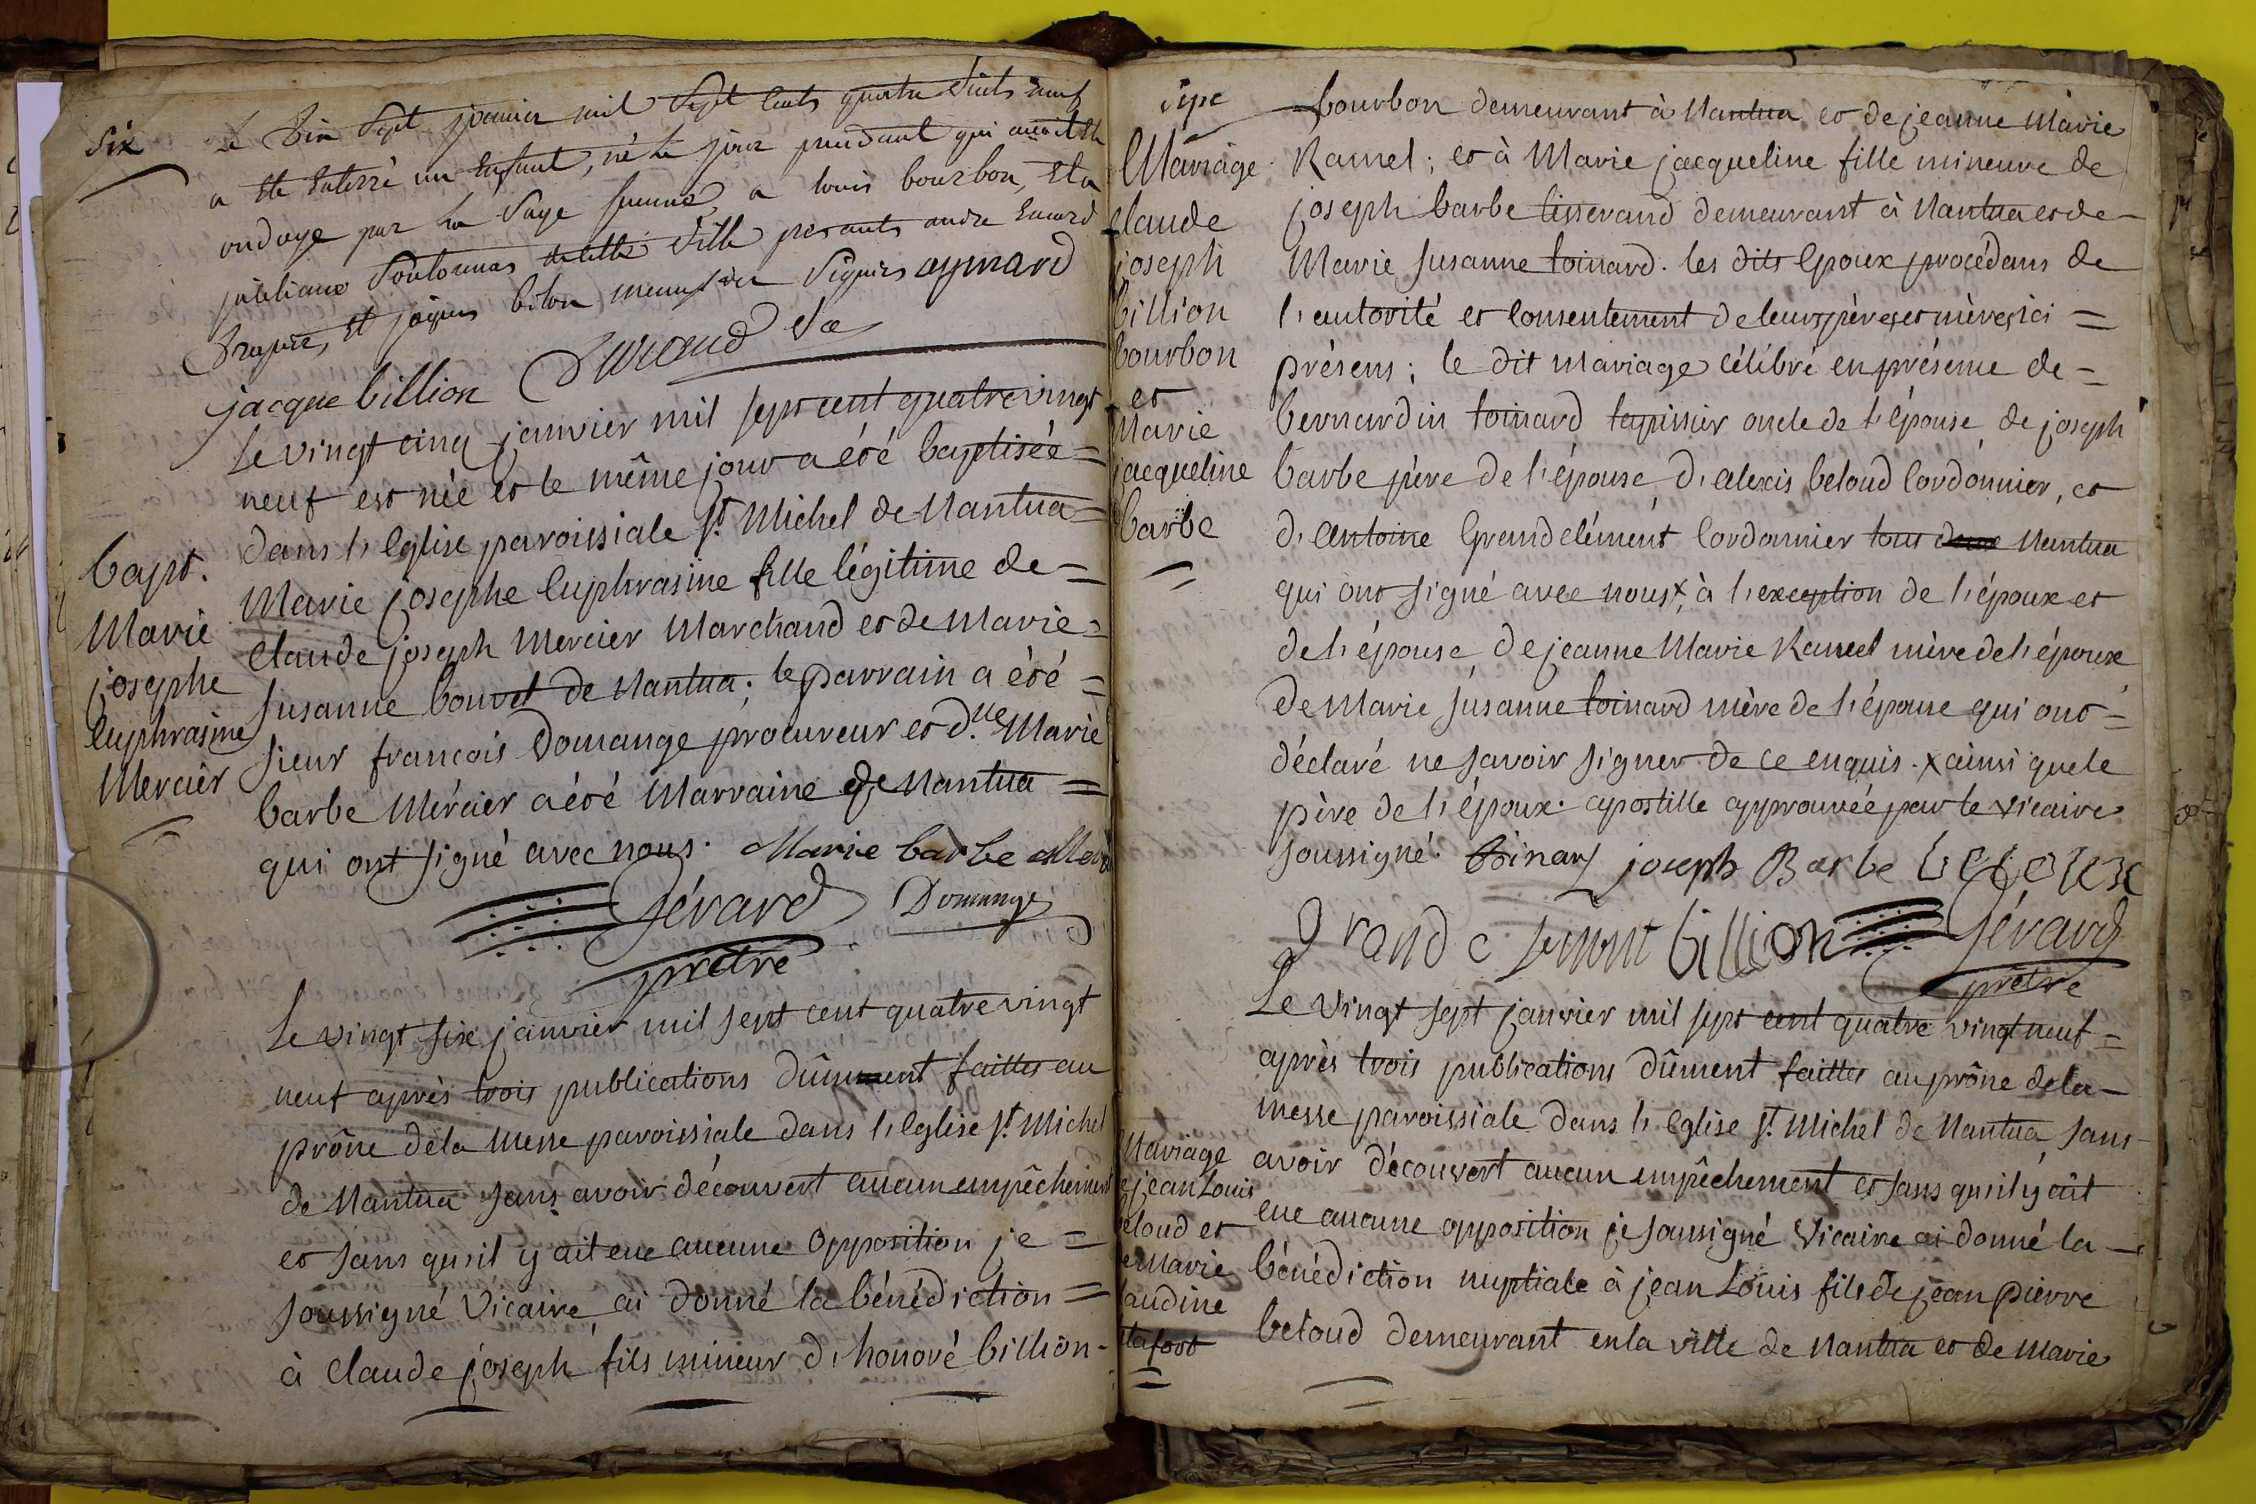 Six
Le Dix Sept janvier mil Sept Cents quatre Vints neuf
a Ete Enterré un Enfant, né le jour
ondoyé par la Sage femme a louis bourbon, Et a
Ville presents andre
Et jaques bilon Signies aymard
jacque billion
Le vingt cinq janvier mil sept cent quatre vingt
neuf est née et le même jour a été baptisée =
dans l'Eglise paroissiale St. Michel de Nantua =
Marie josephe Euphrasine fille légitime de =
Claude joseph Mercier Marchand et de Marie =
Susanne bouvet de Nantua; le parrain a été =
sieur francois Domange procureur et d.lle Marie
barbe Mercier a été Marraine de Nantua =
qui ont signé avec nous. Marie barbe
Gérard Domange
prêtre
bapt.
Marie
josephe
Euphrasine
Mercier
Le vingt six janvier mil sept cent quatre vingt
neuf après trois publications dûmment faittes au
prône de la Messe paroissiale dans l'Eglise St. Michel
de Nantua sans avoir découvert aucun empêchement
et sans qu'il y ait eue aucune Opposition je =
soussigné Vicaire ai donné la bénédiction =
à Claude joseph fils mineur d'honoré billion -
Sept
Mariage
Claude
joseph
billion
bourbon
et
Marie
jacqueline
barbe
bourbon demeurant à Nantua et de jeanne Marie
Ramel; et à Marie jacqueline fille mineure de
joseph barbe tisserand demeurant à Nantua et de -
Marie Susanne toinard. les dits Epoux procédans de
l'autorité et Consentement de leurs pères et mères ici =
présens; le dit Mariage célébré en présence de =
bernardin toinard tapissier oncle de l'épouse, de joseph
barbe père de l'épouse, d'alexis beloud Cordonnier, et
d'Antoine Grandclément Cordonnier tous Nantua
qui ont signé avec nous x, à l'exception de l'époux et
de l'épouse, de jeanne Marie Ramel mère de l'époux
de Marie Susanne toinard mère de l'épouse qui ont =
déclaré ne savoir signer de ce enquis. x ainsi que le
père de l'époux. apostille approuvée par le Vicaire
soussigné. toinard joseph Barbe
Grand Clement billion Gérard
prêtre
Le Vingt sept janvier mil sept cent quatre vingt neuf =
après trois publications dûment faittes au prône de la -
messe paroissiale dans l'Eglise St. Michel de Nantua, sans
avoir découvert aucun empêchement et sans qu'il y eût
eue aucune opposition je soussigné Vicaire ai donné la -
bénédiction nuptiale à jean Louis fils de jean pierre
beloud demeurant en la ville de Nantua et de Marie
Mariage
jean Louis
beloud et